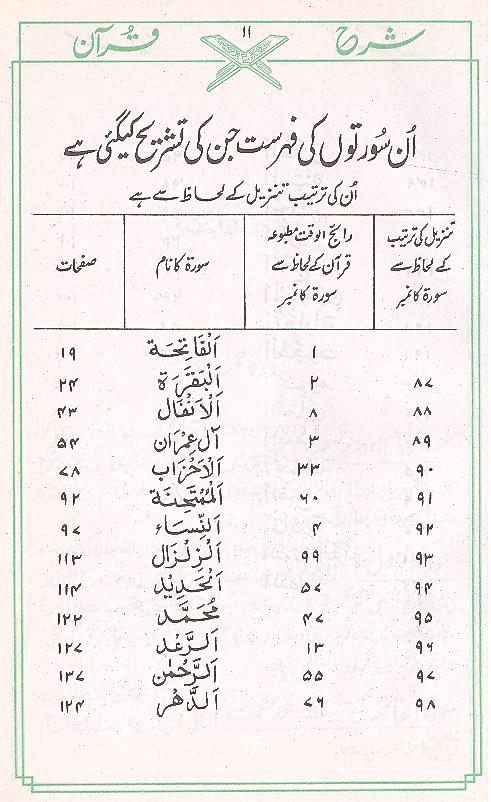 شرح ۱۱ قرآن
اُن سُورتوں کی فہرست جن کی تشریح کی گئی ہے
اُن کی ترتیب تنزیل کے لحاظ سے ہے
تنزیل کی ترتیب کے لحاظ سے سورۃ کا نمبر | رائج الوقت مطبوعہ قرآن کے لحاظ سے سورۃ کا نمبر | سورۃ کا نام | صفحات
۱ اَلْفَاتِحَة ۱۹
۸۷ ۲ اَلْبَقَرَة ۲۴
۸۸ ۸ اَلْاَنْفَال ۴۳
۸۹ ۳ آلِ عِمْرَان ۵۴
۹۰ ۳۳ اَلْاَحْزَاب ۷۸
۹۱ ۶۰ اَلْمُمْتَحِنَة ۹۲
۹۲ ۴ اَلنِّسَاء ۹۷
۹۳ ۹۹ اَلْزِلْزَال ۱۱۳
۹۴ ۵۷ اَلْحَدِيْد ۱۱۴
۹۵ ۴۷ مُحَمَّد ۱۲۲
۹۶ ۱۳ اَلرَّعْد ۱۲۷
۹۷ ۵۵ اَلرَّحْمٰن ۱۳۷
۹۸ ۷۶ اَلدَّهْر ۱۲۴